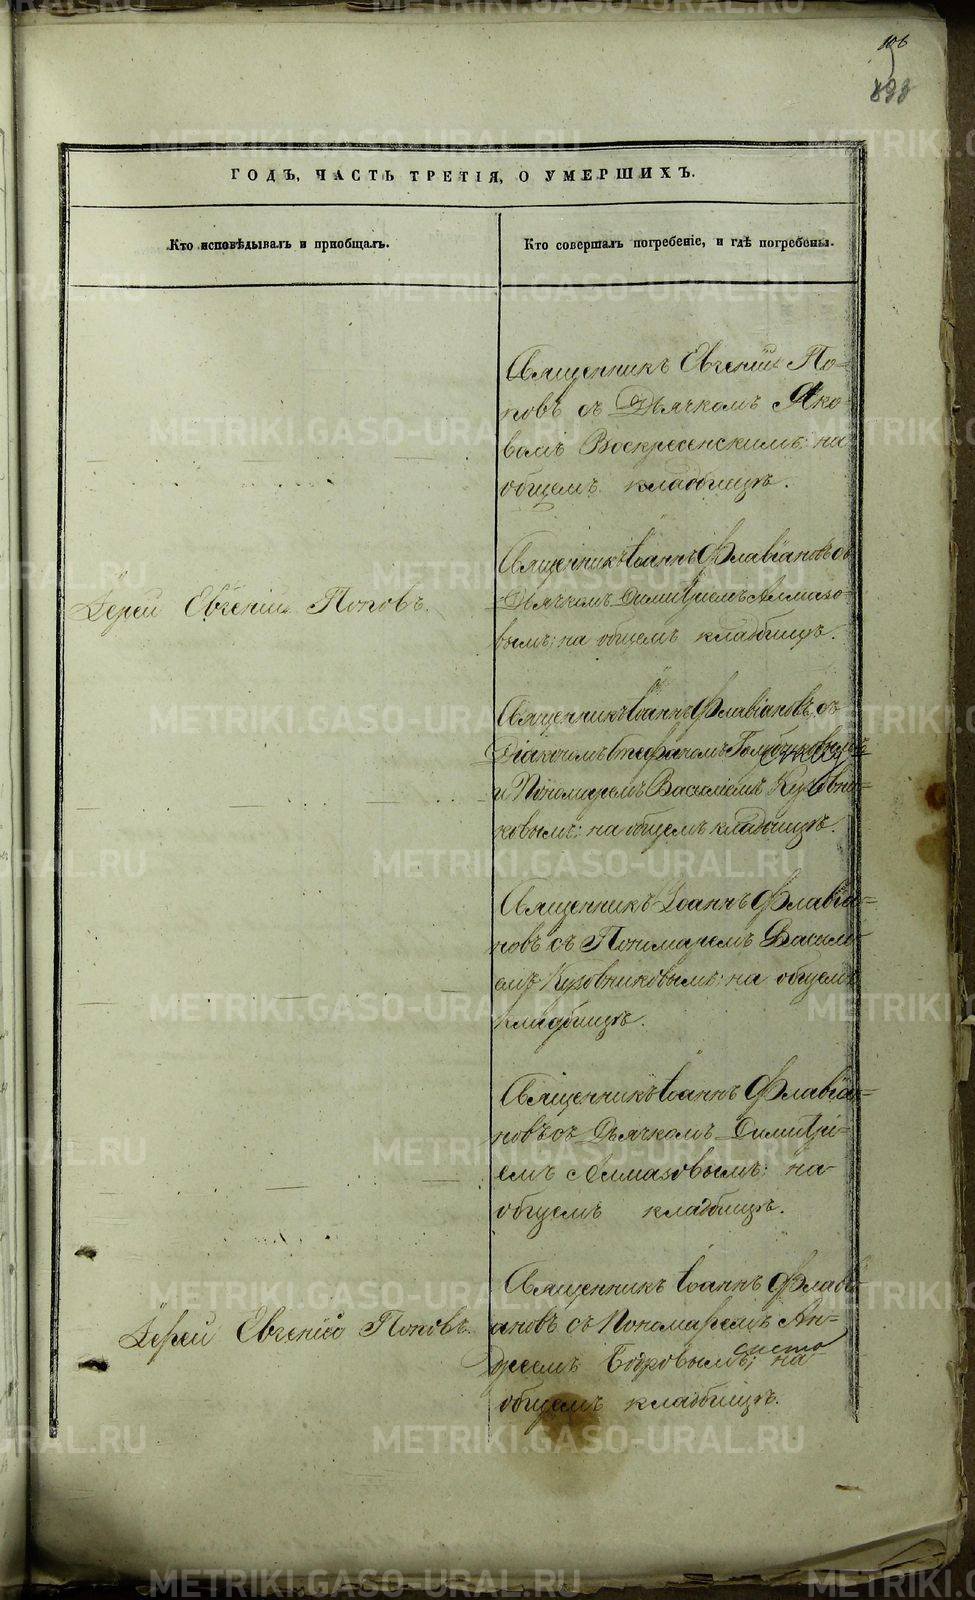 106
898
ГОДЪ, ЧАСТЬ ТРЕТІЯ, О УМЕРШИХЪ.
Кто исповѣдывалъ и пріобщалъ.
Кто совершалъ погребеніе, и гдѣ погребены.
Священникъ Евгеній По-
повъ съ Дьячкомъ Яко-
вомъ Воскресенскимъ; на
общемъ кладбищѣ.
Священникъ Іоаннъ Флавіановъ съ
Дьячкомъ Димитріемъ Алмазо-
вымъ; на общемъ кладбищѣ.
Іерей Евгеній Поповъ.
Священникъ Іоаннъ Флавіановъ, съ
Діакономъ Стефаномъ
и Пономаремъ Василіемъ Кузовни-
ковымъ; на общемъ кладбищѣ.
Священникъ Іоаннъ Флавіа-
новъ съ Пономаремъ Василі-
емъ Кузовниковымъ; на общемъ
кладбищѣ.
Священникъ Іоаннъ Флавіа-
новъ съ Дьячкомъ Димитрі-
емъ Алмазовымъ; на
общемъ кладбищѣ.
Священникъ Іоаннъ Флаві-
ановъ съ Пономаремъ Ан-
дреемъ Бобровымъ; на
общемъ кладбищѣ.
Іерей Евгеній Поповъ.
METRIKI.GASO-URAL.RU